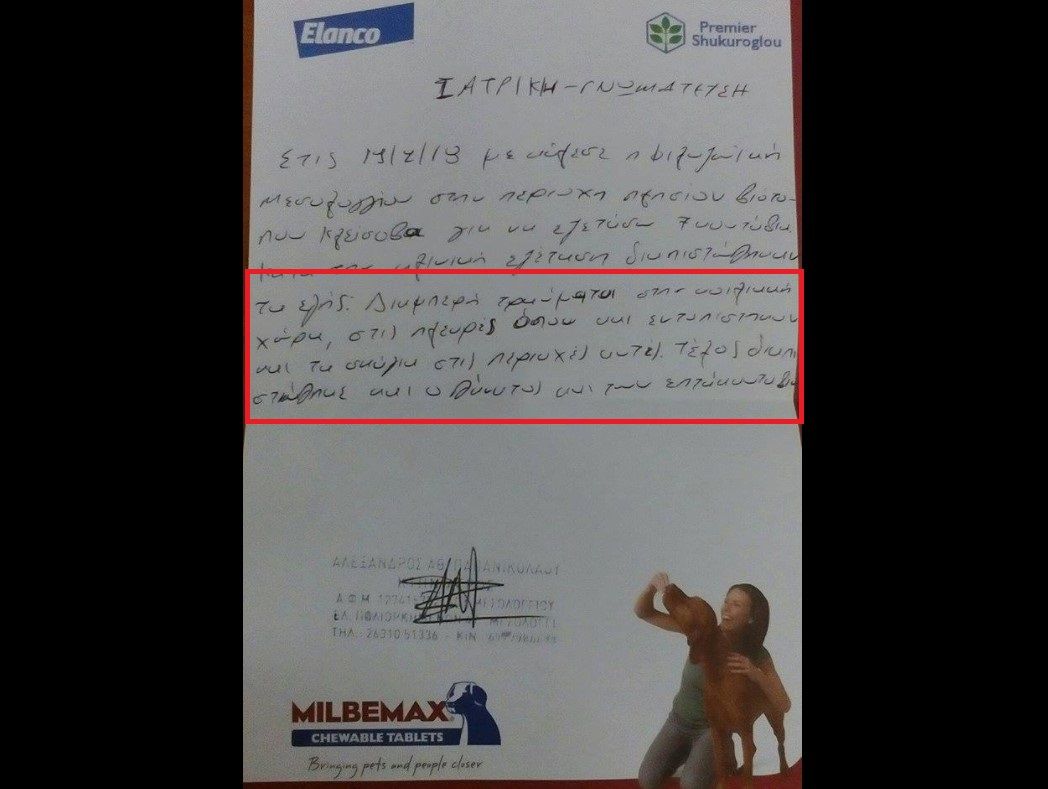 Elanco
Premier
Shukuroglou
ΙΑΤΡΙΚΗ - ΓΝΩΜΑΤΕΥΣΗ
Στις 19/2/19 με κάλεσε η φιλοζωική
Μεσολογγίου στην περιοχή πλησίον βιότο-
που Κλείσοβα για να εξετάσω 7 κουτάβια.
Κατά την κλινική εξέταση διαπιστώθηκαν
τα εξής: Διαμπερή τραύματα στην κοιλιακή
χώρα, στις πλευρές όπου και εντοπίστηκαν
και τα σκάγια στις περιοχές αυτές. Τέλος διαπι
στώθηκε και ο θάνατος και των επτά κουταβιών
ΑΛΕΞΑΝΔΡΟΣ ΑΘ. ΠΑΠΑΝΙΚΟΛΑΟΥ
Α.Φ.Μ. ΜΕΣΟΛΟΓΓΙΟΥ
ΤΗΛ.: 26310 51336 - ΚΙΝ.
MILBEMAX
CHEWABLE TABLETS
Bringing pets and people closer